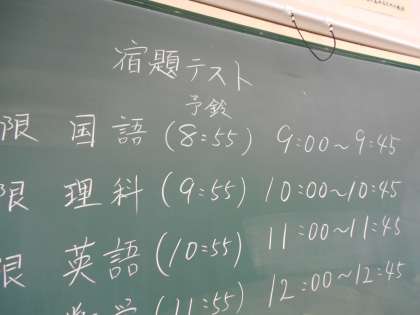 宿題テスト
予鈴
限 国語 (8:55) 9:00~9:45
限 理科 (9:55) 10:00~10:45
限 英語 (10:55) 11:00~11:45
数学 (11:55) 12:00~12:45